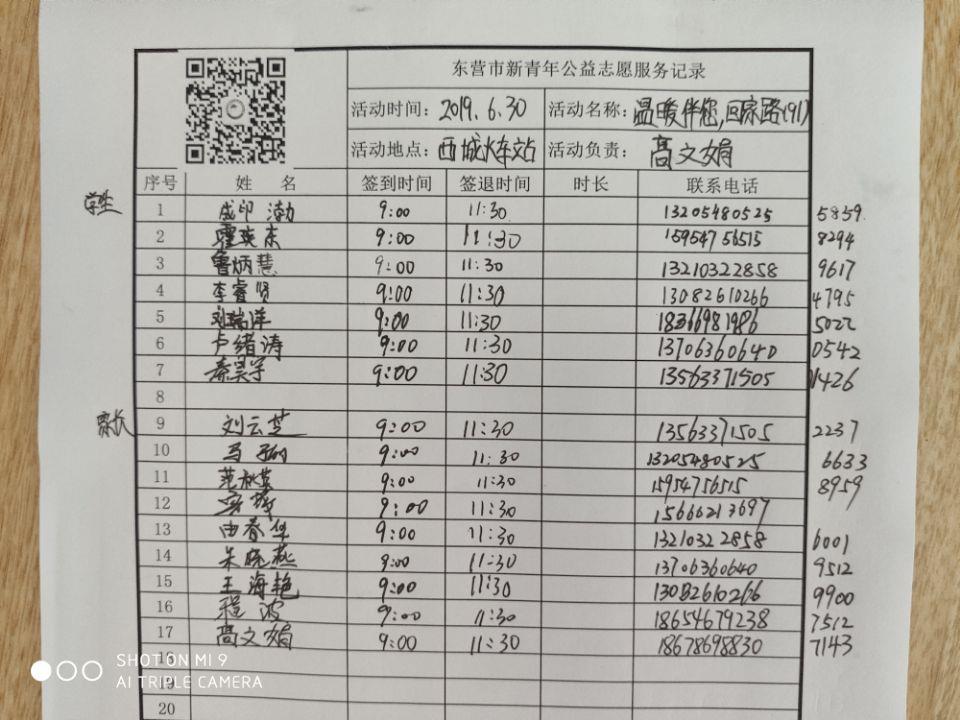 东营市新青年公益志愿服务记录
活动时间: 2019.6.30 活动名称: 温暖伴您,回家路(91)
活动地点: 西城火车站 活动负责: 高文娟
序号 姓 名 签到时间 签退时间 时长 联系电话
学生
1 成印渤 9:00 11:30 13205480525 5859.
2 9:00 11:30 15954756515 8294
3 鲁炳慧 9:00 11:30 13210322858 9617
4 李睿贤 9:00 11:30 13082610266 4795
5 刘瑞洋 9:00 11:30 18366981986 5022
6 卢绪涛 9:00 11:30 13706360640 0542
7 秦昊宇 9:00 11:30 13563371505 1426
8
家长
9 刘云芝 9:00 11:30 13563371505 2237
10 马 9:00 11:30 13205480525 6633
11 范秋英 9:00 11:30 15954756515 8959
12 9:00 11:30 15666213697
13 由春华 9:00 11:30 1321032 2858 6001
14 朱晓燕 9:00 11:30 13706360640 9512
15 王海艳 9:00 11:30 13082610266 9900
16 程波 9:00 11:30 18654679238 7512
17 高文娟 9:00 11:30 18678698830 7143
18
19
20
SHOT ON MI 9
AI TRIPLE CAMERA